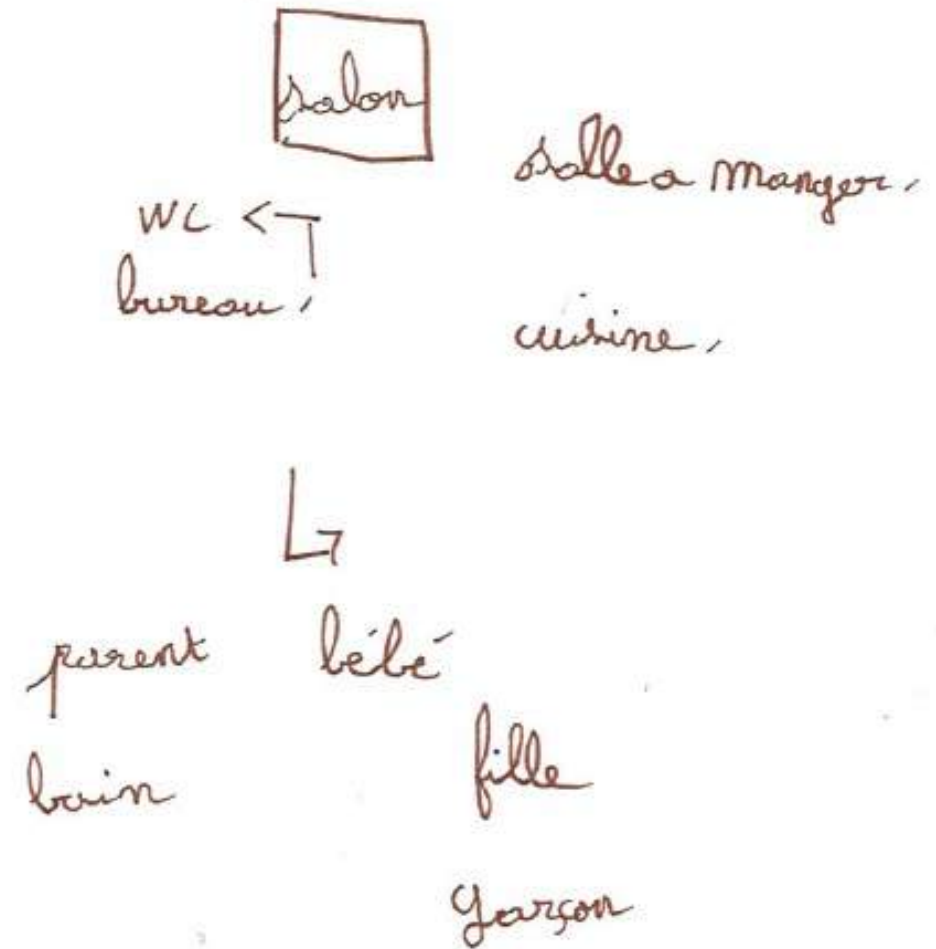 salon
salle a manger.
WC
bureau.
cuisine.
parent bébé
fille
bain
garçon